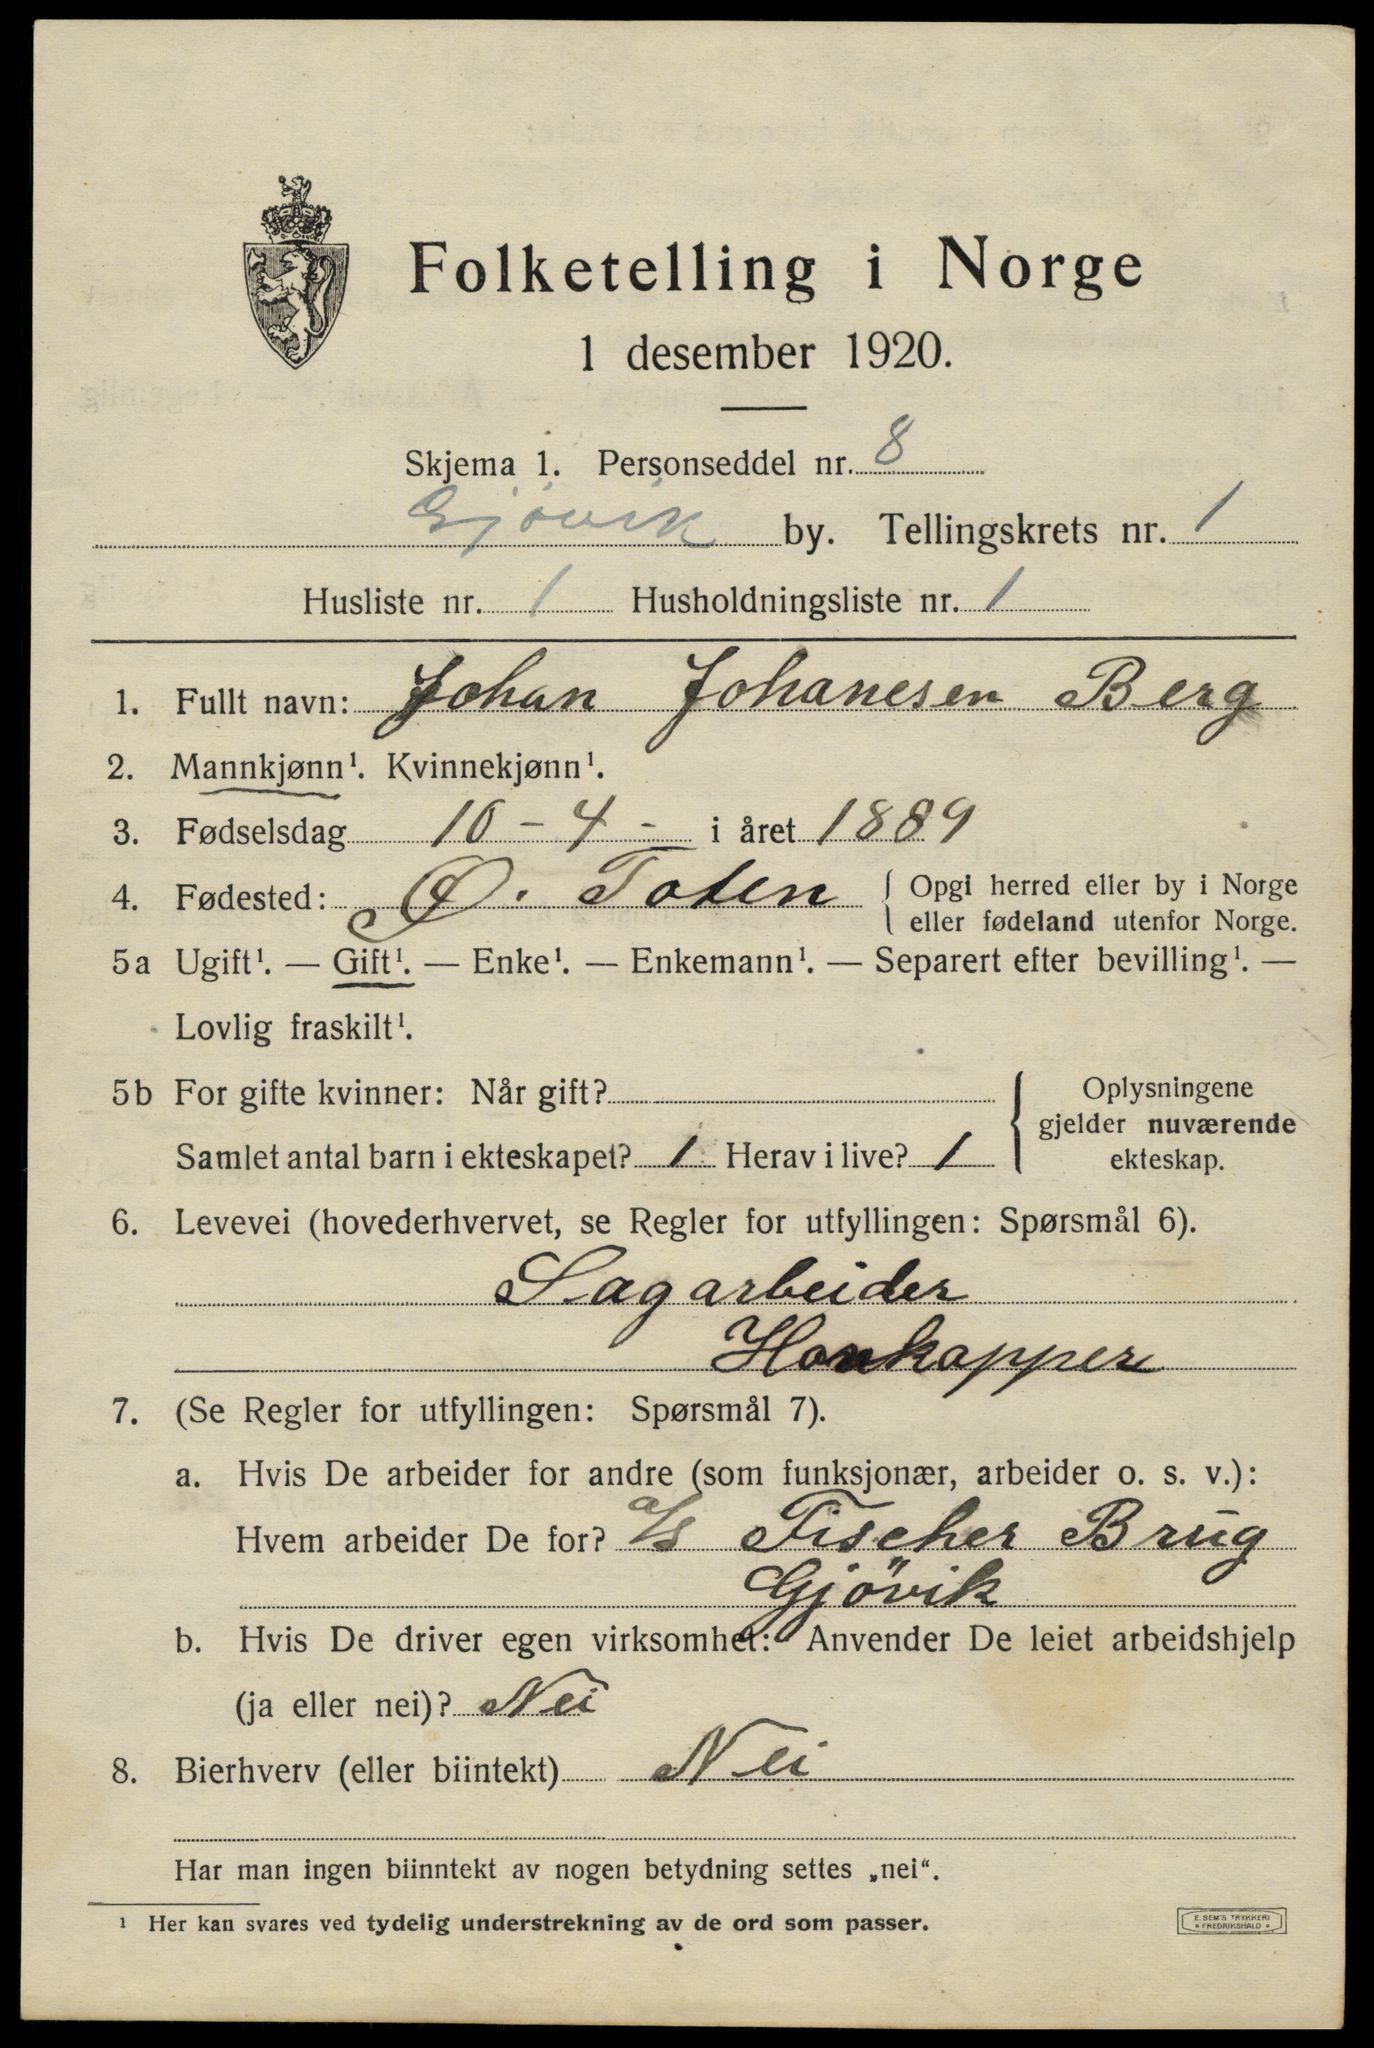 Folketelling i Norge
1 desember 1920.
Skjema 1. Personseddel nr. 8
Gjövik by. Tellingskrets nr. 1
Husliste nr. 1 Husholdningsliste nr. 1
1. Fullt navn: Johan Johanesen Berg
2. Mannkjønn¹. Kvinnekjønn¹.
3. Fødselsdag 10 - 4 - i året 1889
4. Fødested: Ø. Toten { Opgi herred eller by i Norge
eller fødeland utenfor Norge.
5a Ugift¹. — Gift¹. — Enke¹. — Enkemann¹. — Separert efter bevilling¹. —
Lovlig fraskilt¹.
5b For gifte kvinner: Når gift?
Samlet antal barn i ekteskapet? 1 Herav i live? 1
Oplysningene
gjelder nuværende
ekteskap.
6. Levevei (hovederhvervet, se Regler for utfyllingen: Spørsmål 6).
Sagarbeider
7. (Se Regler for utfyllingen: Spørsmål 7).
a. Hvis De arbeider for andre (som funksjonær, arbeider o. s. v.):
Hvem arbeider De for? a/s Fischer Brug
Gjövik
b. Hvis De driver egen virksomhet: Anvender De leiet arbeidshjelp
(ja eller nei)? Nei
8. Bierhverv (eller biintekt) Nei
Har man ingen biinntekt av nogen betydning settes „nei".
¹ Her kan svares ved tydelig understrekning av de ord som passer.
E. SEM'S TRYKKERI
FREDRIKSHALD